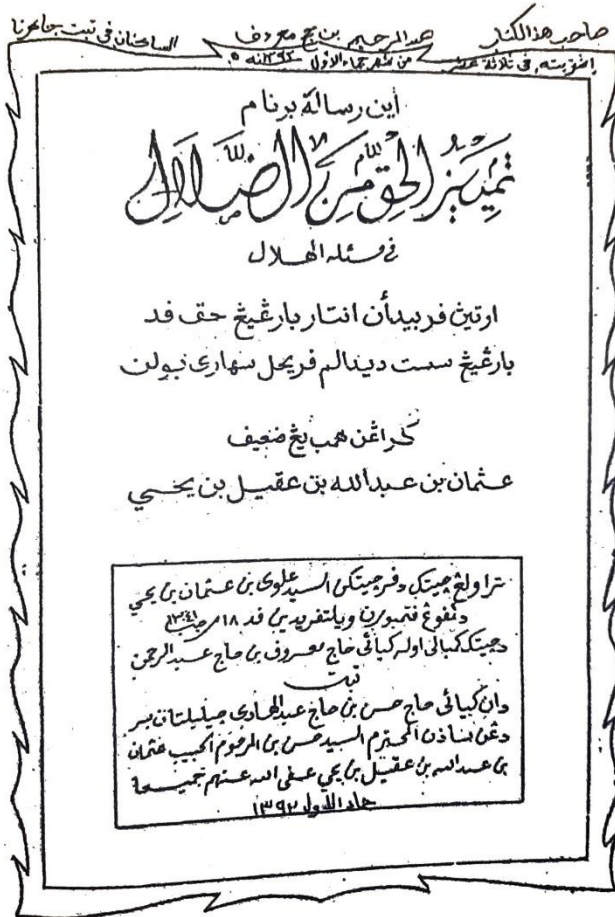 صاحب هذ الكتاب عبد الرحيم بن حج معروف الساكنان في تبت جاكرتا
إشتريته في ثلاثة عشر من شهر جماد الأول سنه ١٣٩٢
اين رسالة برنام
تمييز الحق من الضلال
في مسئلة الهلال
ارتيڽ فربيدأن انتار بارڠيڠ حق فد
بارڠيڠ سست ديدالم فريحل سهاري بولن
كراڠن همب يڠ ضعيف
عثمان بن عبد الله بن عقيل بن يحيى
تراولڠ چيتق دفرچيتكن السيد علوي بن عثمان بن يحي
دكمفوڠ فتمبورن ويلتفريدين فد ١٨ رجب ١٣٤١
دچيتق كمبالي اوله كيائي حاج معروف بن حاج عبد الرحمن
تبت
دان كيائي حاج حسن بن حاج عبد الهادي جيليليتان بسر
دڠن ايذن المحترم السيد حسن بن المرحوم الحبيب عثمان
بن عبد الله بن عقيل بن يحي عفى الله عنهم جميعا
جماد الاول ١٣٩٢